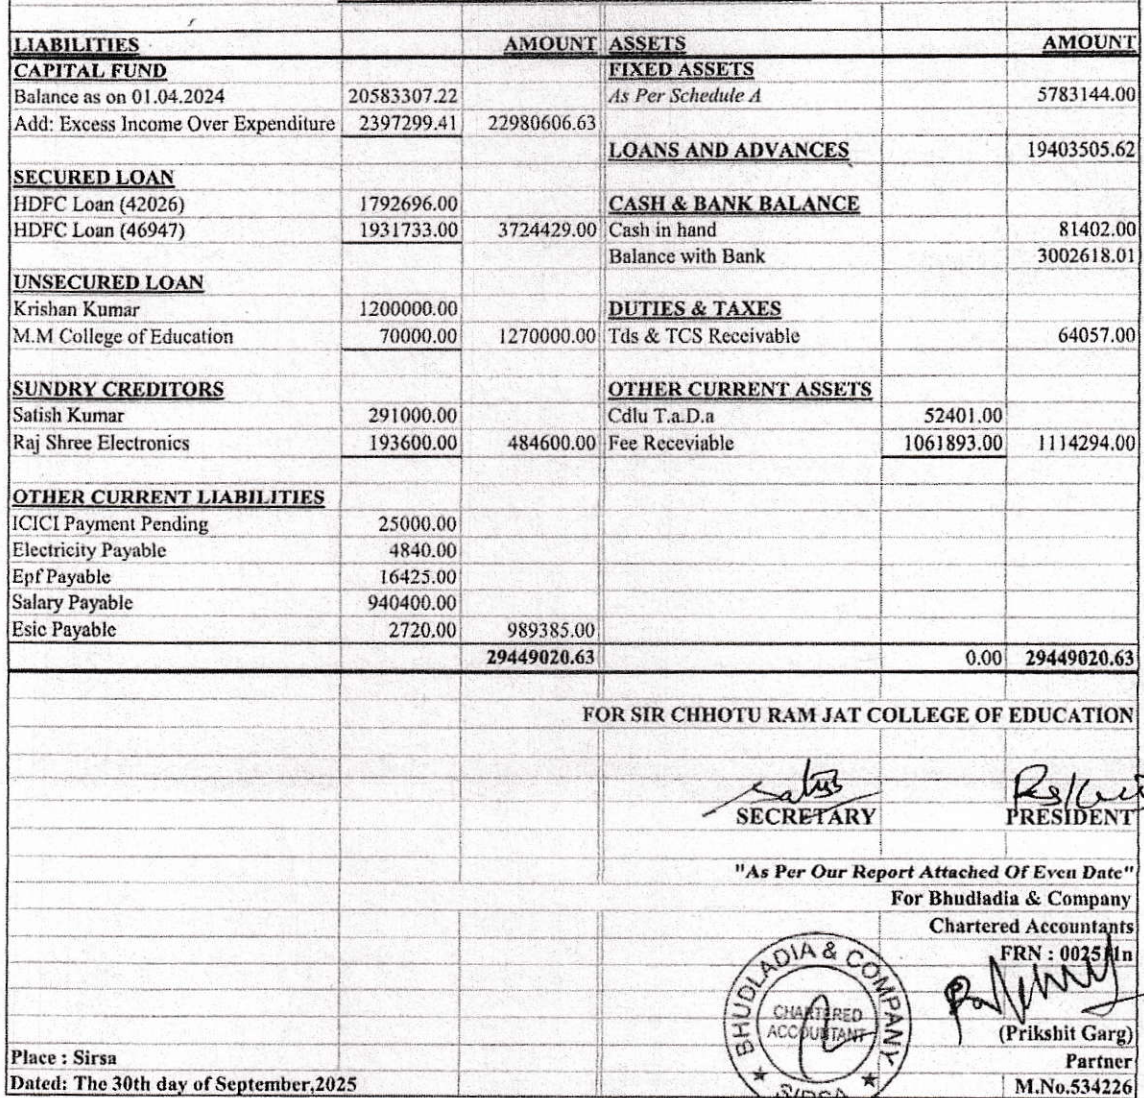 LIABILITIES AMOUNT ASSETS AMOUNT
CAPITAL FUND FIXED ASSETS
Balance as on 01.04.2024 20583307.22 As Per Schedule A 5783144.00
Add: Excess Income Over Expenditure 2397299.41 22980606.63
LOANS AND ADVANCES 19403505.62
SECURED LOAN
HDFC Loan (42026) 1792696.00 CASH & BANK BALANCE
HDFC Loan (46947) 1931733.00 3724429.00 Cash in hand 81402.00
Balance with Bank 3002618.01
UNSECURED LOAN
Krishan Kumar 1200000.00 DUTIES & TAXES
M.M College of Education 70000.00 1270000.00 Tds & TCS Receivable 64057.00
SUNDRY CREDITORS OTHER CURRENT ASSETS
Satish Kumar 291000.00 Cdlu T.a.D.a 52401.00
Raj Shree Electronics 193600.00 484600.00 Fee Receviable 1061893.00 1114294.00
OTHER CURRENT LIABILITIES
ICICI Payment Pending 25000.00
Electricity Payable 4840.00
Epf Payable 16425.00
Salary Payable 940400.00
Esic Payable 2720.00 989385.00
29449020.63 0.00 29449020.63
FOR SIR CHHOTU RAM JAT COLLEGE OF EDUCATION
SECRETARY PRESIDENT
"As Per Our Report Attached Of Even Date"
For Bhudladia & Company
Chartered Accountants
FRN :
BHUDLADIA & COMPANY
CHARTERED
ACCOUNTANT
SIRSA
(Prikshit Garg)
Place : Sirsa Partner
Dated: The 30th day of September,2025 M.No.534226